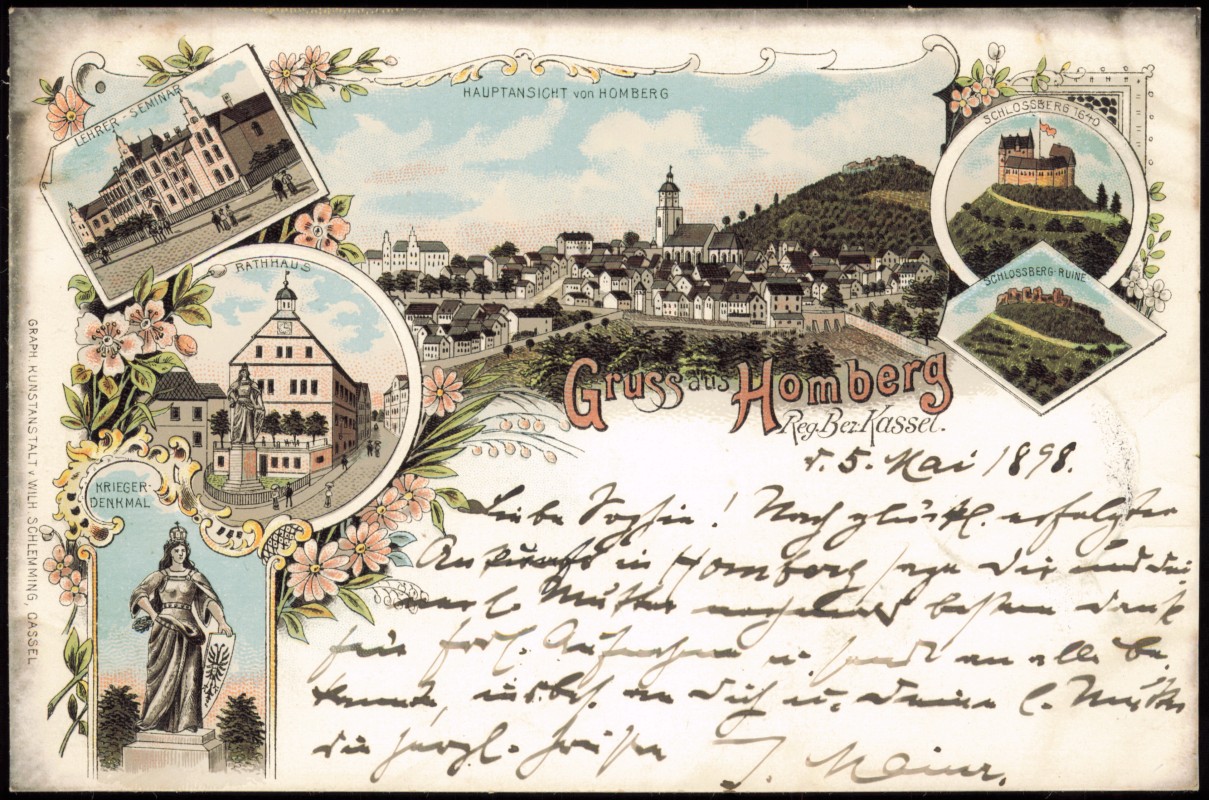 HAUPTANSICHT von HOMBERG
LEHRER-SEMINAR
SCHLOSSBERG 1640
RATHHAUS
SCHLOSSBERG-RUINE
Gruss aus Homberg
Reg. Bez. Kassel.
KRIEGER-
DENKMAL
GRAPH. KUNSTANSTALT v. WILH. SCHLEMMING, CASSEL
d. 5. Mai 1898.
Liebe Sophie! Nach glückl. erfolgter
Ankunft in Homberg sage Dir und Dei-
ner l. Mutter nochmals besten Dank
für frdl. Aufnahme u. sende an alle Be-
kannte, insbes. an Dich u. Deine l. Mutter
die herzl. Grüßen